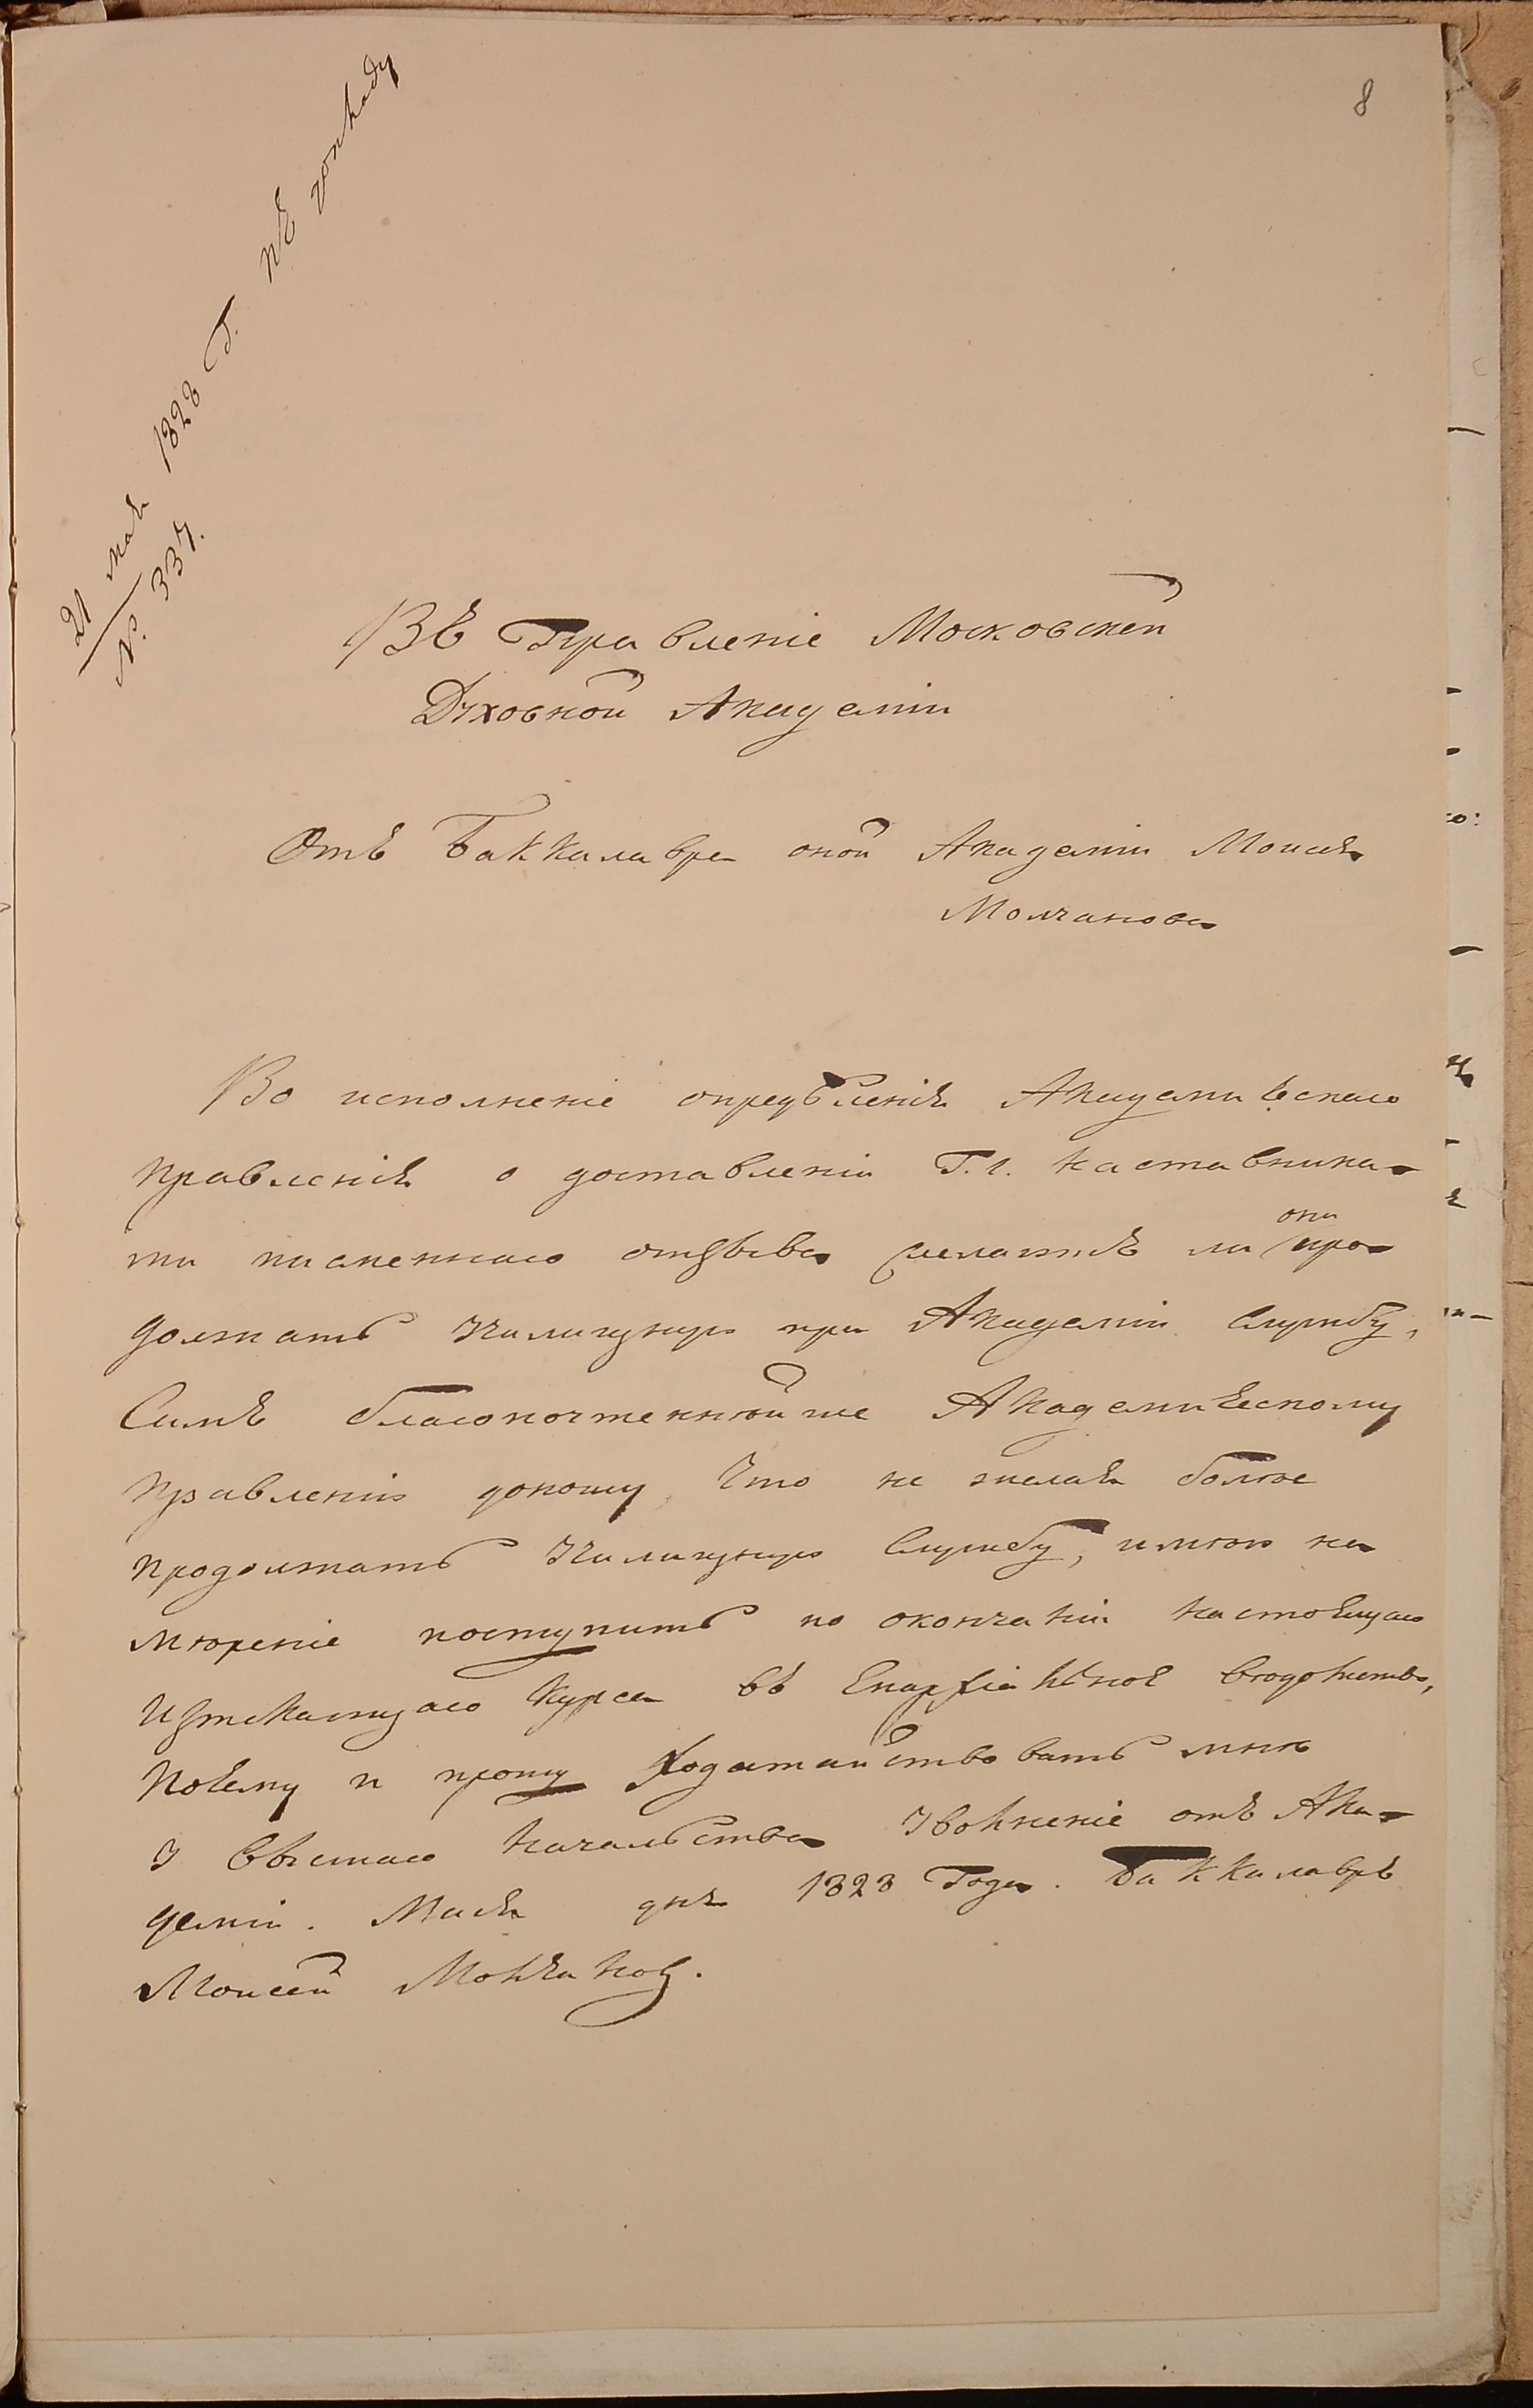 8
21 мая 1828 Г. къ докладу
№. 337.
Въ Правленіе Московской
Духовной Академіи
Отъ Баккалавра оной Академіи Моисея
Молчанова
Во исполненіе опредѣленія Академическаго
Правленія о доставленіи Г. г. наставника-
ми писменнаго отзыва желаютъ ли они про-
должать училищную при Академіи службу,
Симъ благопочтеннѣйше Академическому
Правленію доношу, что не желая болѣе
продолжать училищную службу, имѣю на
мѣреніе поступить по окончаніи настоящаго
изтекающаго курса въ Епархіальное вѣдомство,
почему и прошу ходатайствовать мнѣ
у высшаго начальства увольненіе отъ Ака-
деміи. Маія дня 1828 Года. Баккалавръ
Моисей Молчановъ.